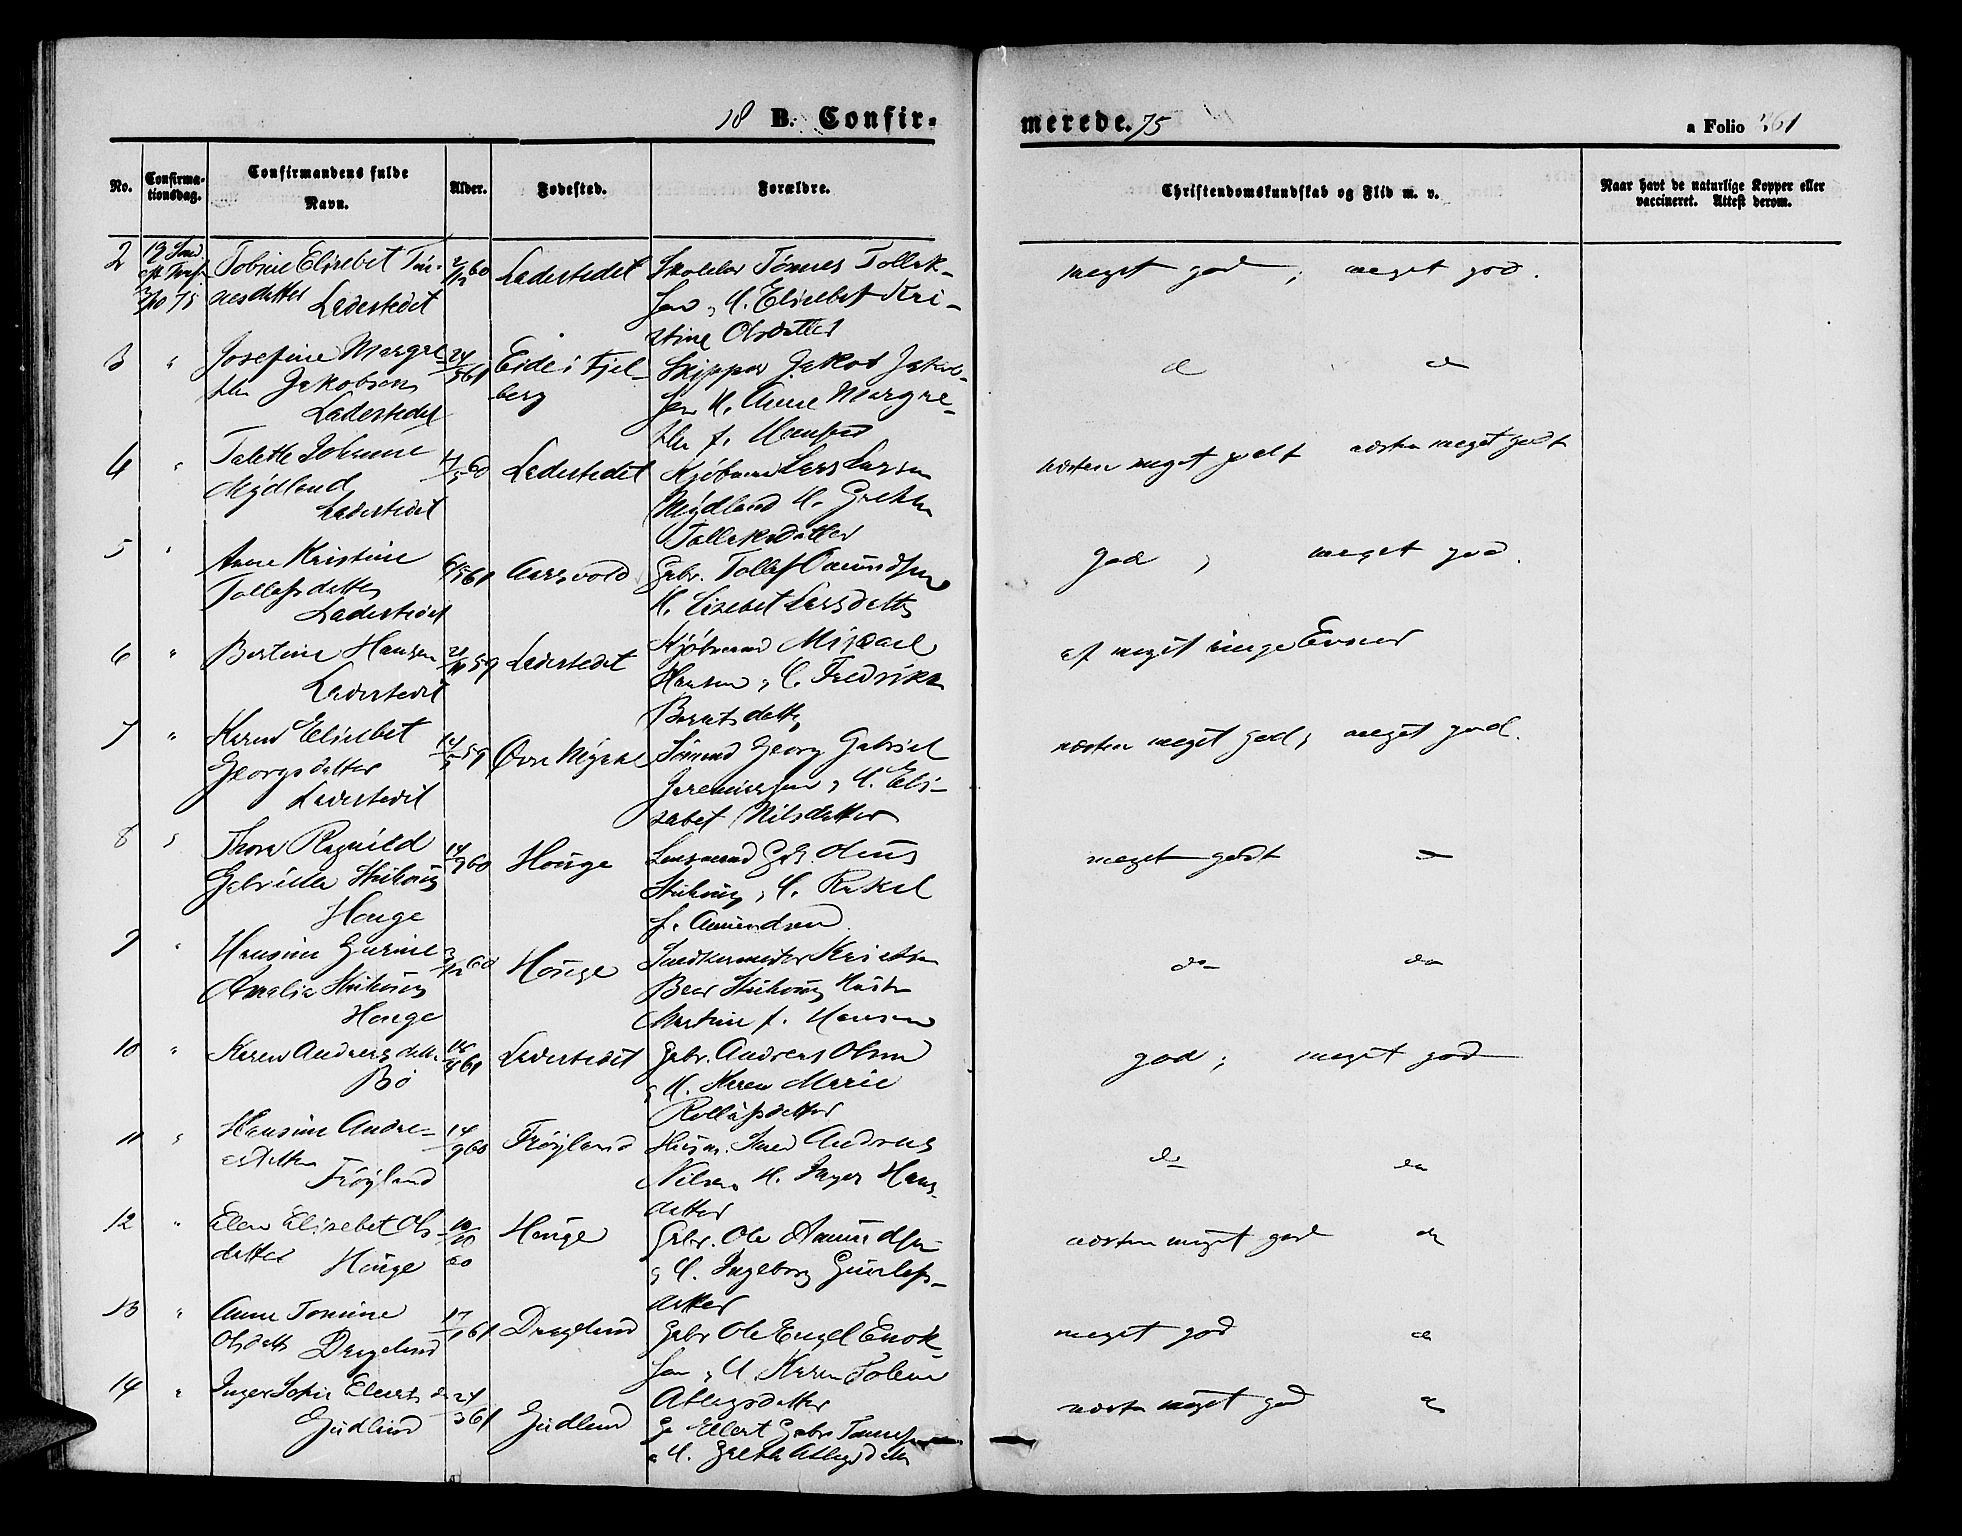 18 B. Confir-
merede. 75
a Folio 361
No.
Confirma-
tionsdag.
Confirmandens fulde
Navn.
Alder.
Fødested.
Forældre.
Christendomskundskab og Flid m. v.
Naar havt de naturlige Kopper eller
vaccineret. Attest derom.
2 19 Tobine Elisebet Tøn-
nesdatter
Ladestedet
60 Ladestedet
Tønnes Tollak-
sen, H. Elisebet Kri-
stine Olsdatter
meget god ; meget god.
3 " Josefine Margre-
the Jakobsen
Ladestedet
24/3 61 Eide i Fjel-
berg
Skipper Jakob Jakob-
sen H. Anne Margre-
the f. Hansen
d d
4 " Talette Johanne
Mydland
Ladestedet
60 Ladestedet
Kjøbmand Lars Larsen
Mydland H. Grethe
Tollaksdatter
næsten meget godt næsten meget godt
5 " Anne Kristine
Tollefsdatter
Ladestedet
61 Aarsvold
Gbr. Tollef Omundsen
H. Lisebet Larsdatter
god , meget god.
6 " Bertine Hansen
Ladestedet
59 Ladestedet
Kjøbmand Mikael
Hansen, H. Fredrikke
Berntsdatter
af meget ringe Evner
7 " Karen Elisebet
Georgsdatter
Ladestedet
59 Øvre Mysse
Sømand Georg Gabriel
Jeremiassen, H. Eli-
sabet Nilsdatter
næsten meget god, meget god.
8 " Thora Ragnild
Gabrielle Stuhoug
Houge
14/9 60 Houge
Lensmand Olaus
Stuhoug, H. Rakel
f. Amundsen.
meget godt do
9 " Hansine Gurine
Amalie Stuhoug
Houge
3/12 60 Houge
Snedkermester Kristen
Beer Stuhoug Hustru
Martine f. Hansen
do do
10 " Karen Andreasdatter
Bø
61 Ladestedet
Gbr. Andreas Olsen
H. Karen Marie
Rollufsdatter
god ; meget god
11 " Hansine Andre-
asdatter
Frøyland
14/9 60 Frøyland
Husm. Smed Andreas
Nilsen H. Inger Hans-
datter
do do
12 " Elen Elisebet Ols-
datter Houge
10/10
60
Houge
Gbr. Ole Aamundsen
H. Ingeborg Gunlefs-
datter
næsten meget god do
13 " Anne Tomine
Olsdatter Dragland
17/1 61 Dragland
Gbr Ole Engel Enok-
sen, H Karen Tolene
Atlagsdatter
meget god do
14 " Inger Sofie Elerts d
Gudlund
24/3 61 Gudlund
G. Ellert Gabr. Tønnes
H. Grethe Atlagsdatter
næsten meget god do